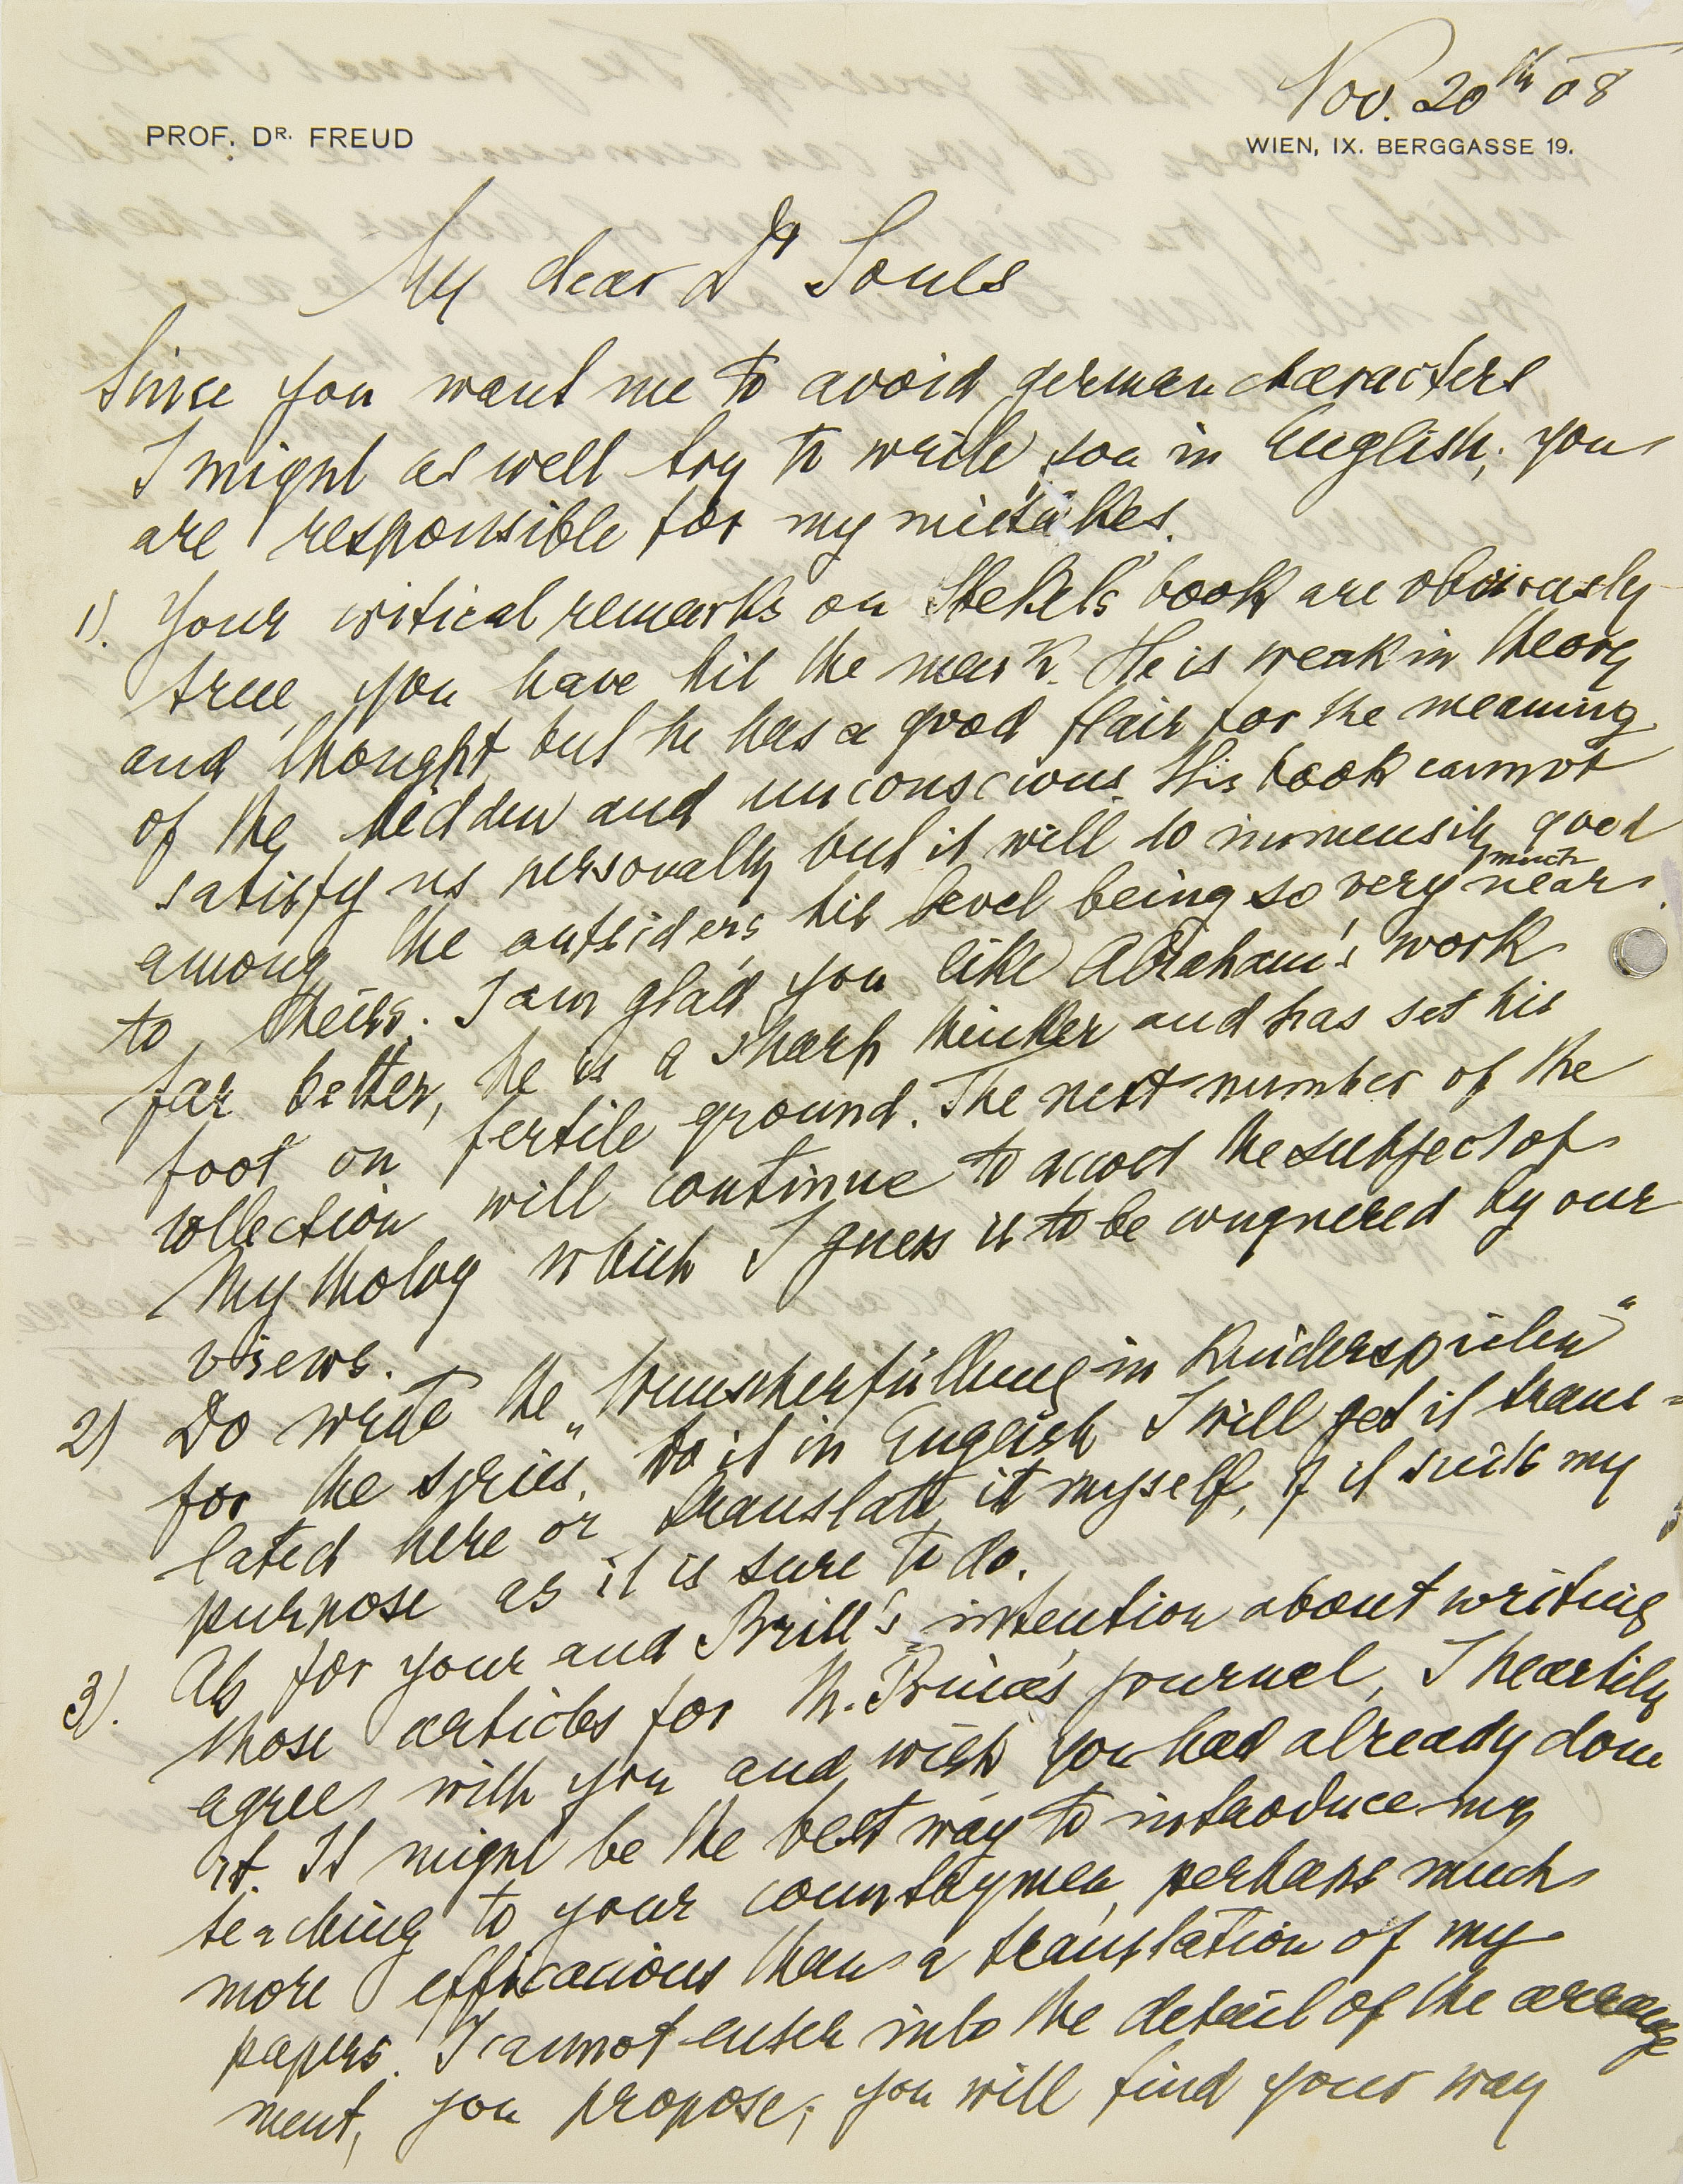 Nov. 20th 08
PROF. DR. FREUD
WIEN, IX. BERGGASSE 19.
My dear Dr Jones
Since you want me to avoid german characters
I might as well try to write you in English; you
are responsible for my mistakes.
1). Your critical remarks on Stekel's book are obviously
true, you have hit the mark. He is weak in theory
and thought but he has a good flair for the meaning
of the hidden and unconscious. His book cannot
satisfy us personally but it will do immensily good
among the outsiders, his level being so very much near
to theirs. I am glad you like Abraham's work
far better, he is a sharp thinker and has set his
foot on fertile ground. The next number of the
collection will continue to the subject of
Mytholog which I guess is to be conquered by our
views.
2) Do write the „Wunscherfüllung in Kinderspielen“
for the series. Do it in English I will get it trans=
lated here or translate it myself, if it suits my
purpose as it is sure to do.
3). As for your and Brill's intention about writing
those articles for M. Prince's journal, I heartily
agree with you and wish you had already done
it. It might be the best way to introduce my
teaching to your countrymen, perhaps much
more efficacious than a translation of my
papers. I cannot enter into the detail of the arrange
ment, you propose; you will find your way